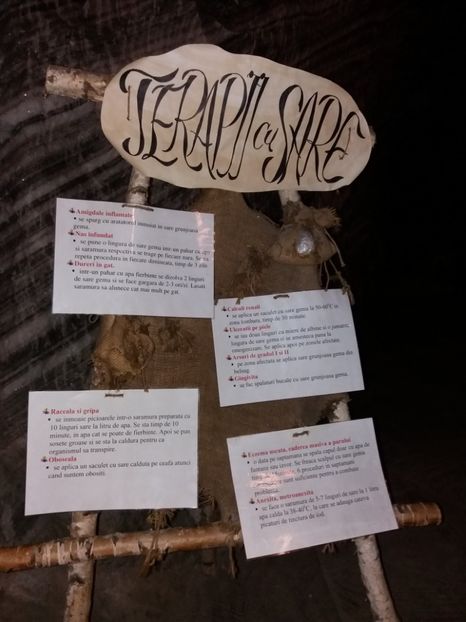 TERAPII cu SARE
Amigdale inflamate
• se sparg cu aratatorul inmuiat in sare grunjoasa
gema.
Nas infundat
• se pune o lingura de sare gema intr-un pahar cu apa
si saramura respectiva se trage pe fiecare nara. Se va
repeta procedura in fiecare dimineata, timp de 3 zile
Dureri in gat.
• intr-un pahar cu apa fierbinte se dizolva 2 linguri
de sare gema si se face gargara de 2-3 ori/zi. Lasati
saramura sa alunece cat mai mult pe gat.
Calculi renali
• se aplica un saculet cu sare gema la 50-60°C in
zona lombara, timp de 30 minute.
pe piele
• se iau doua linguri cu miere de albine si o jumatate
lingura de sare gema si se amesteca pana la
omogenizare. Se aplica apoi pe zonele afectate.
Arsuri de gradul I si II
• pe zona afectata se aplica sare grunjoasa gema din
belsug.
Gingivita
• se fac spalaturi bucale cu sare grunjoasa gema.
Raceala si gripa
• se inmoaie picioarele intr-o saramura preparata cu
10 linguri sare la litru de apa. Se sta timp de 10
minute, in apa cat se poate de fierbinte. Apoi se pun
sosete groase si se sta la caldura pentru ca
organismul sa transpire.
Oboseala
• se aplica un saculet cu sare calduta pe ceafa atunci
cand suntem obositi.
Eczema uscata, caderea masiva a parului
• o data pe saptamana se spala capul doar cu apa de
fantana sau izvor. Se freaca scalpul cu sare gema
6 proceduri in saptamani
sunt suficiente pentru a combate
problema.
Anexita, metroanexita
• se face o saramura de 5-7 linguri de sare la 1 litru
apa calda la 38-40°C, la care se adauga cateva
picaturi de tinctura de iod.